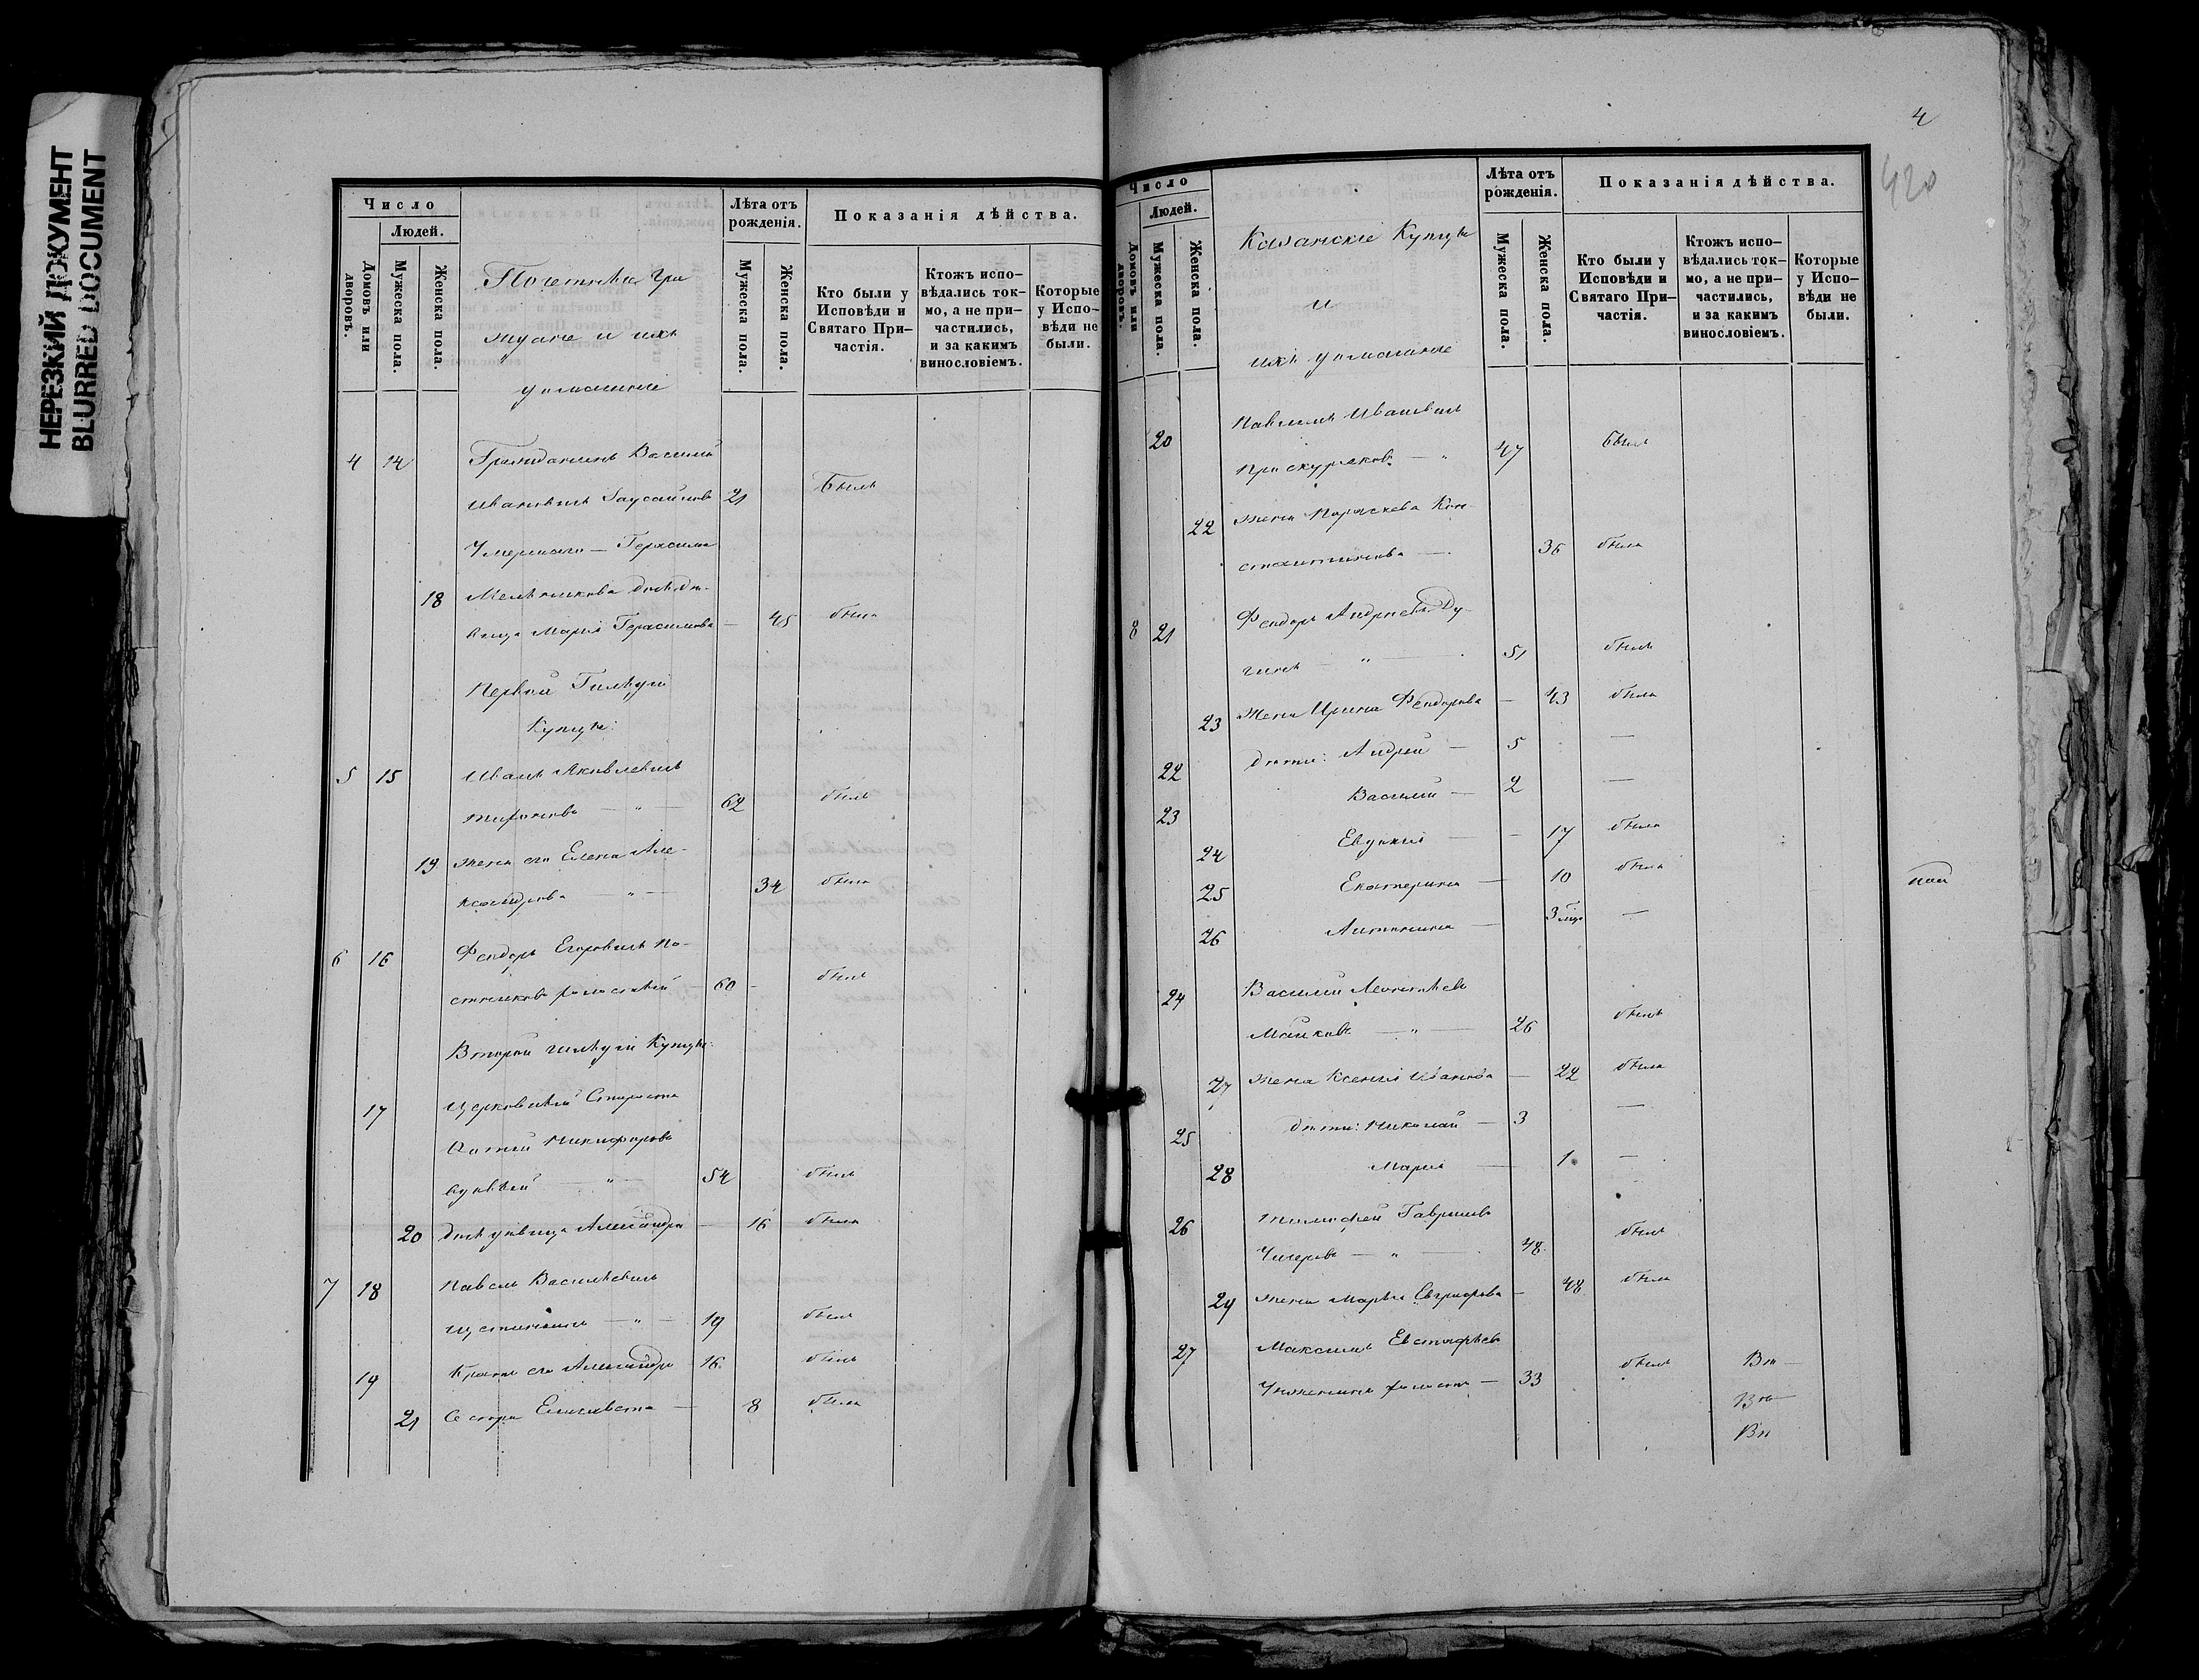 НЕРЕЗКИЙ ДОКУМЕНТ
BLURRED DOCUMENT
Число
Людей.
Домовъ или дворовъ.
Мужеска пола.
Женска пола.
Почетные Гра
ждане и ихъ
домашніе
Лѣта отъ рожденія.
Мужеска пола.
Женска пола.
Показанія дѣйства.
Кто были у Исповѣди и Святаго При-частія.
Ктожъ испо-вѣдались ток-мо, а не при-частились, и за какимъ винословіемъ.
Которые у Испо-вѣди не были.
4 14 Гражданинъ Василій
Ивановичъ 21 былъ
Умершаго — Герасима
18 Мельникова дочь дѣ-
вица Марія Герасимова — 45 была
Первой Гильдіи
Купцы:
5 15 Иванъ Яковлевичъ
— " — 62 былъ
19 Жена его Елена Але-
ксандрова — " — 34 была
6 16 Феодоръ Егоровичъ По-
стниковъ холостый 60 - былъ
Второй гильдіи Купцы:
17 Церковный Староста
Никифоровъ
— " — 54 былъ
20 Дочь дѣвица Александра — 16 была
7 18 Павелъ Васильевичъ
— " — 19 былъ
19 Братъ его Александръ 16 былъ
21 Сестра Елизавета — 8 была
4
420
Число
Людей.
Домовъ или дворовъ.
Мужеска пола.
Женска пола.
Казанскіе Купцы
и
ихъ домашніе
Лѣта отъ рожденія.
Мужеска пола.
Женска пола.
Показанія дѣйства.
Кто были у Исповѣди и Святаго При-частія.
Ктожъ испо-вѣдались ток-мо, а не при-частились, и за какимъ винословіемъ.
Которые у Испо-вѣди не были.
20 Ивановичъ
Проскуряковъ — " 47 былъ
22 Жена Параскева Кон-
стантинова — 36 была
8 21 Феодоръ Андреевъ Ду-
гинъ — " — 51 былъ
23 Жена Ирина Феодорова — 43 была
22 Дѣти: Андрей — 5 —
23 Василій — 2 —
24 Евдокія — 17 была
25 Екатерина — 10 была
26 Антонина — 3 —
24 Василій Леонтьевъ
Майковъ — " — 26 былъ
27 Жена Ксенія Иванова — 22 была
25 Дѣти: Николай — 3 —
28 Марія — 1 —
26 Тимофей Гавриловъ
— " — 48 былъ
29 Жена Марья — 48 была
27 Максимъ Евстафьевъ
холостъ — 33 былъ